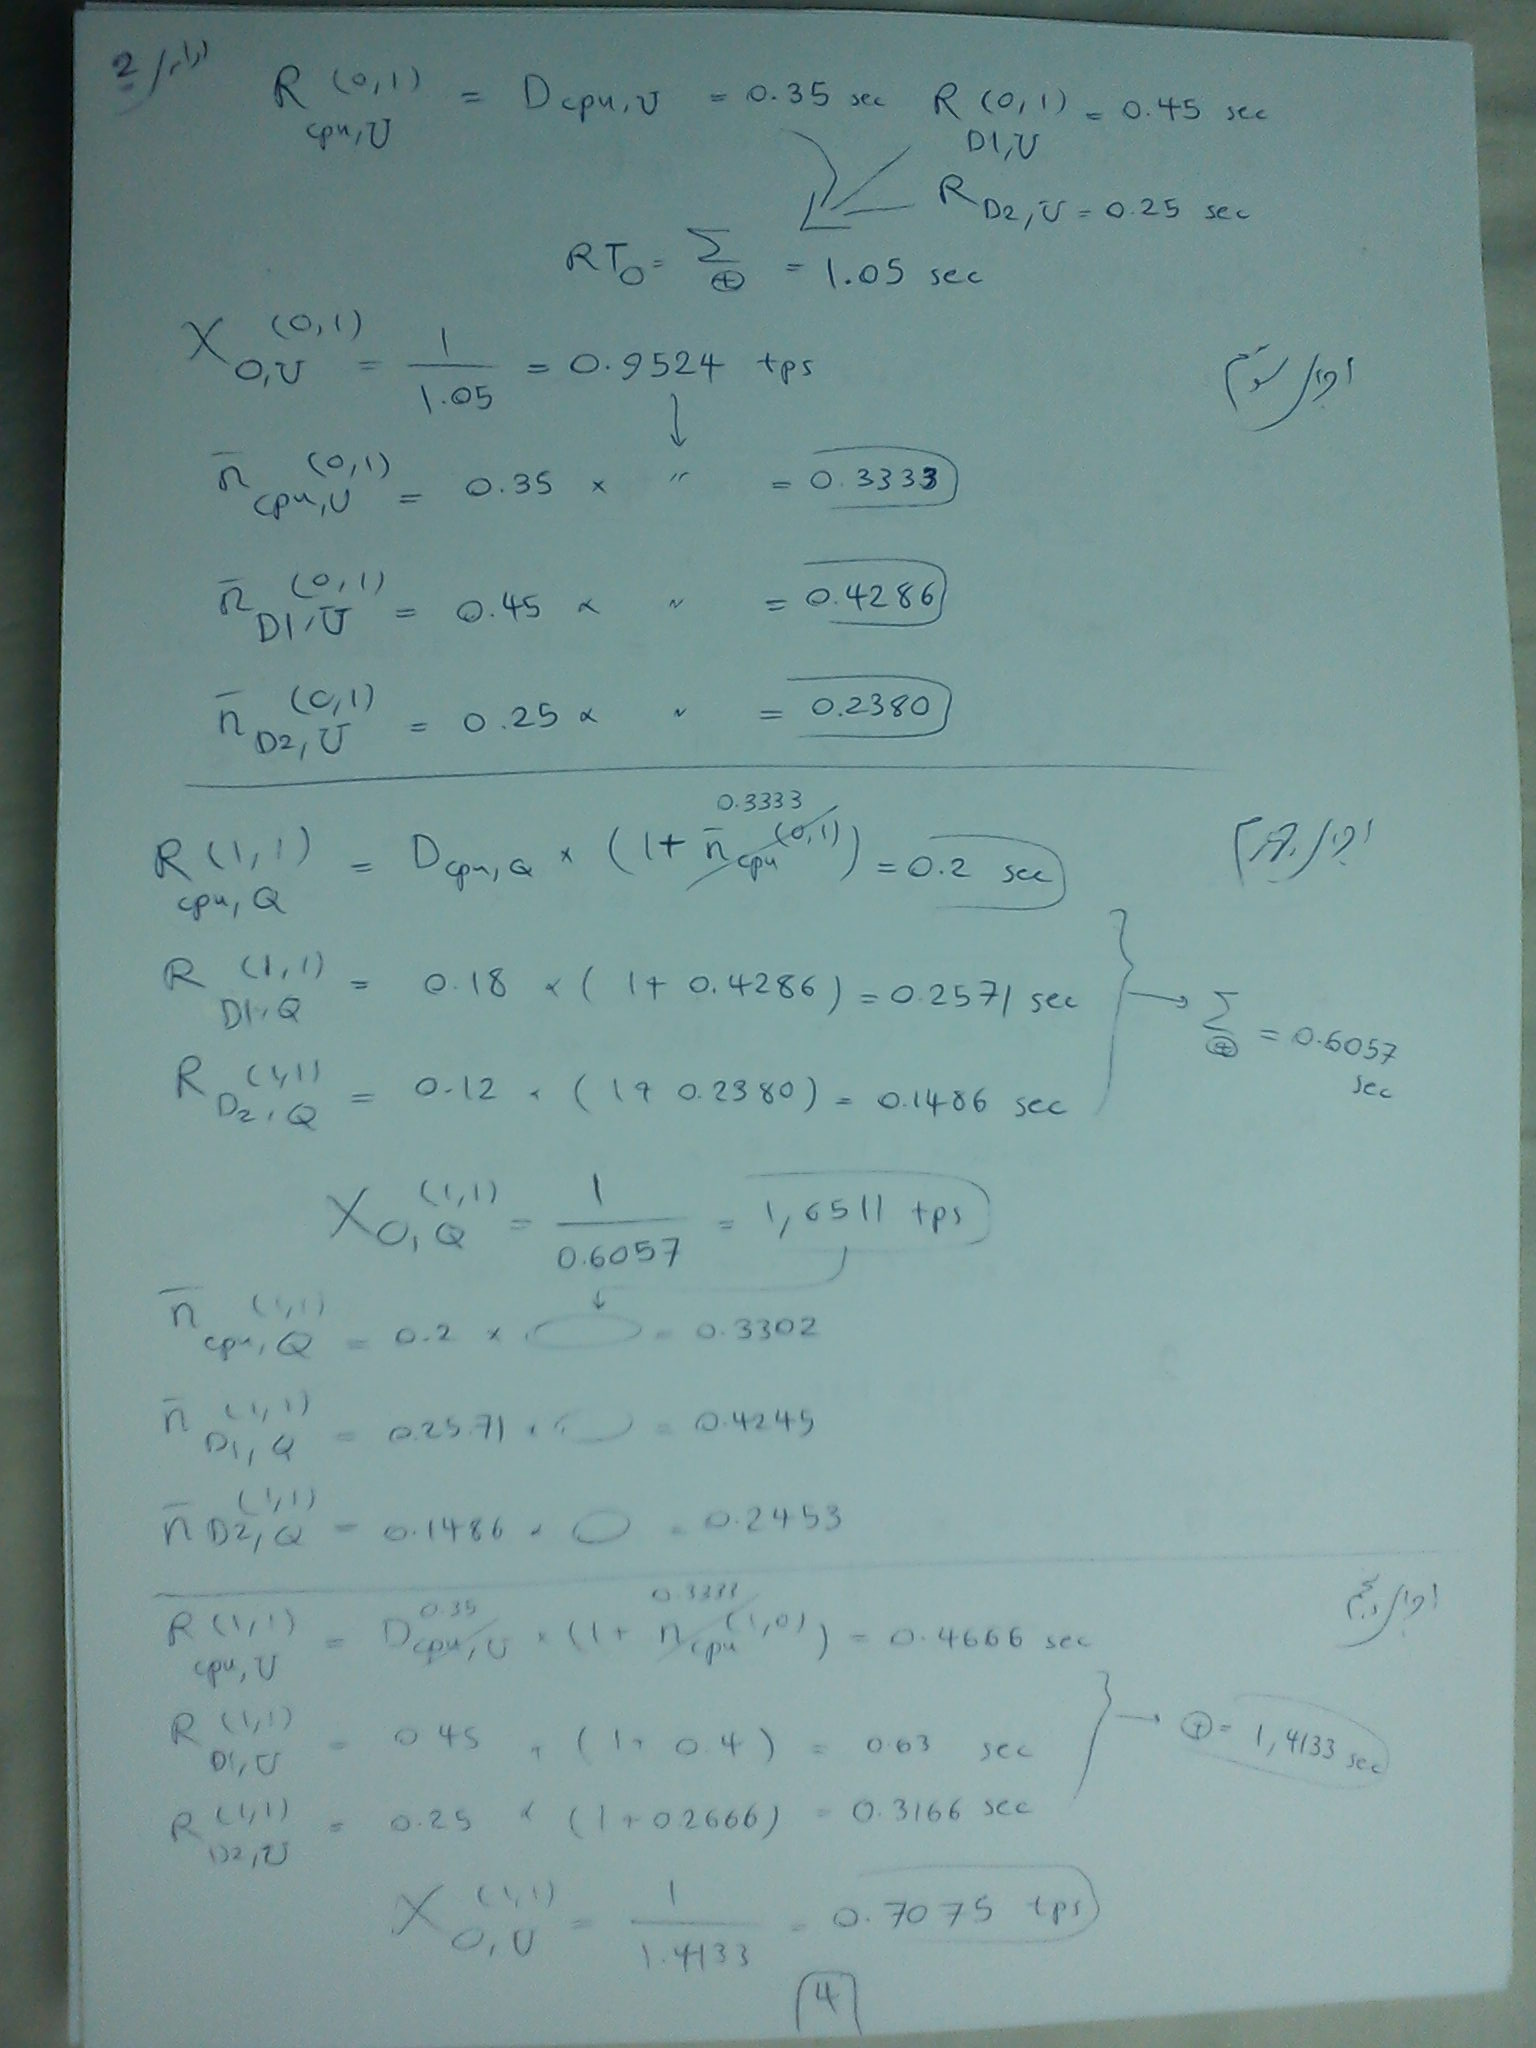 ادامه 2
R cpu,U (0,1) = D cpu,U = 0.35 sec R D1,U (0,1) = 0.45 sec
R D2,U = 0.25 sec
RT0 = Σ ⊕ = 1.05 sec
X 0,U (0,1) = 1 / 1.05 = 0.9524 tps
n̄ cpu,U (0,1) = 0.35 × " = 0.3333
n̄ D1,U (0,1) = 0.45 × " = 0.4286
n̄ D2,U (0,1) = 0.25 × " = 0.2380
0.3333
R cpu,Q (1,1) = D cpu,Q × (1 + n̄ cpu (0,1)) = 0.2 sec
R D1,Q (1,1) = 0.18 × (1 + 0.4286) = 0.2571 sec
Σ ⊕ = 0.6057 sec
R D2,Q (1,1) = 0.12 × (1 + 0.2380) = 0.1486 sec
X 0,Q (1,1) = 1 / 0.6057 = 1,6511 tps
n̄ cpu,Q (1,1) = 0.2 × = 0.3302
n̄ D1,Q (1,1) = 0.2571 × = 0.4245
n̄ D2,Q (1,1) = 0.1486 × = 0.2453
0.35 0.3333
R cpu,U (1,1) = D cpu,U × (1 + n cpu (1,0)) = 0.4666 sec
R D1,U (1,1) = 0.45 × (1 + 0.4) = 0.63 sec
⊕ = 1,4133 sec
R D2,U (1,1) = 0.25 × (1 + 0.2666) = 0.3166 sec
X 0,U (1,1) = 1 / 1.4133 = 0.7075 tps
4